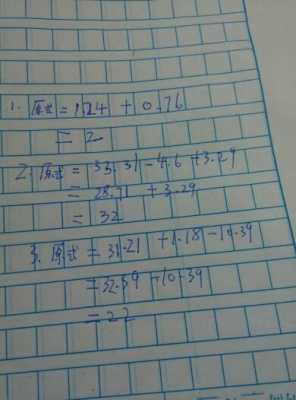 1. 原式=1.24+0.76
=2
2. 原式=33.31-4.6+3.29
=28.71+3.29
=32
3. 原式=31.21+1.18-10.39
=32.39-10.39
=22